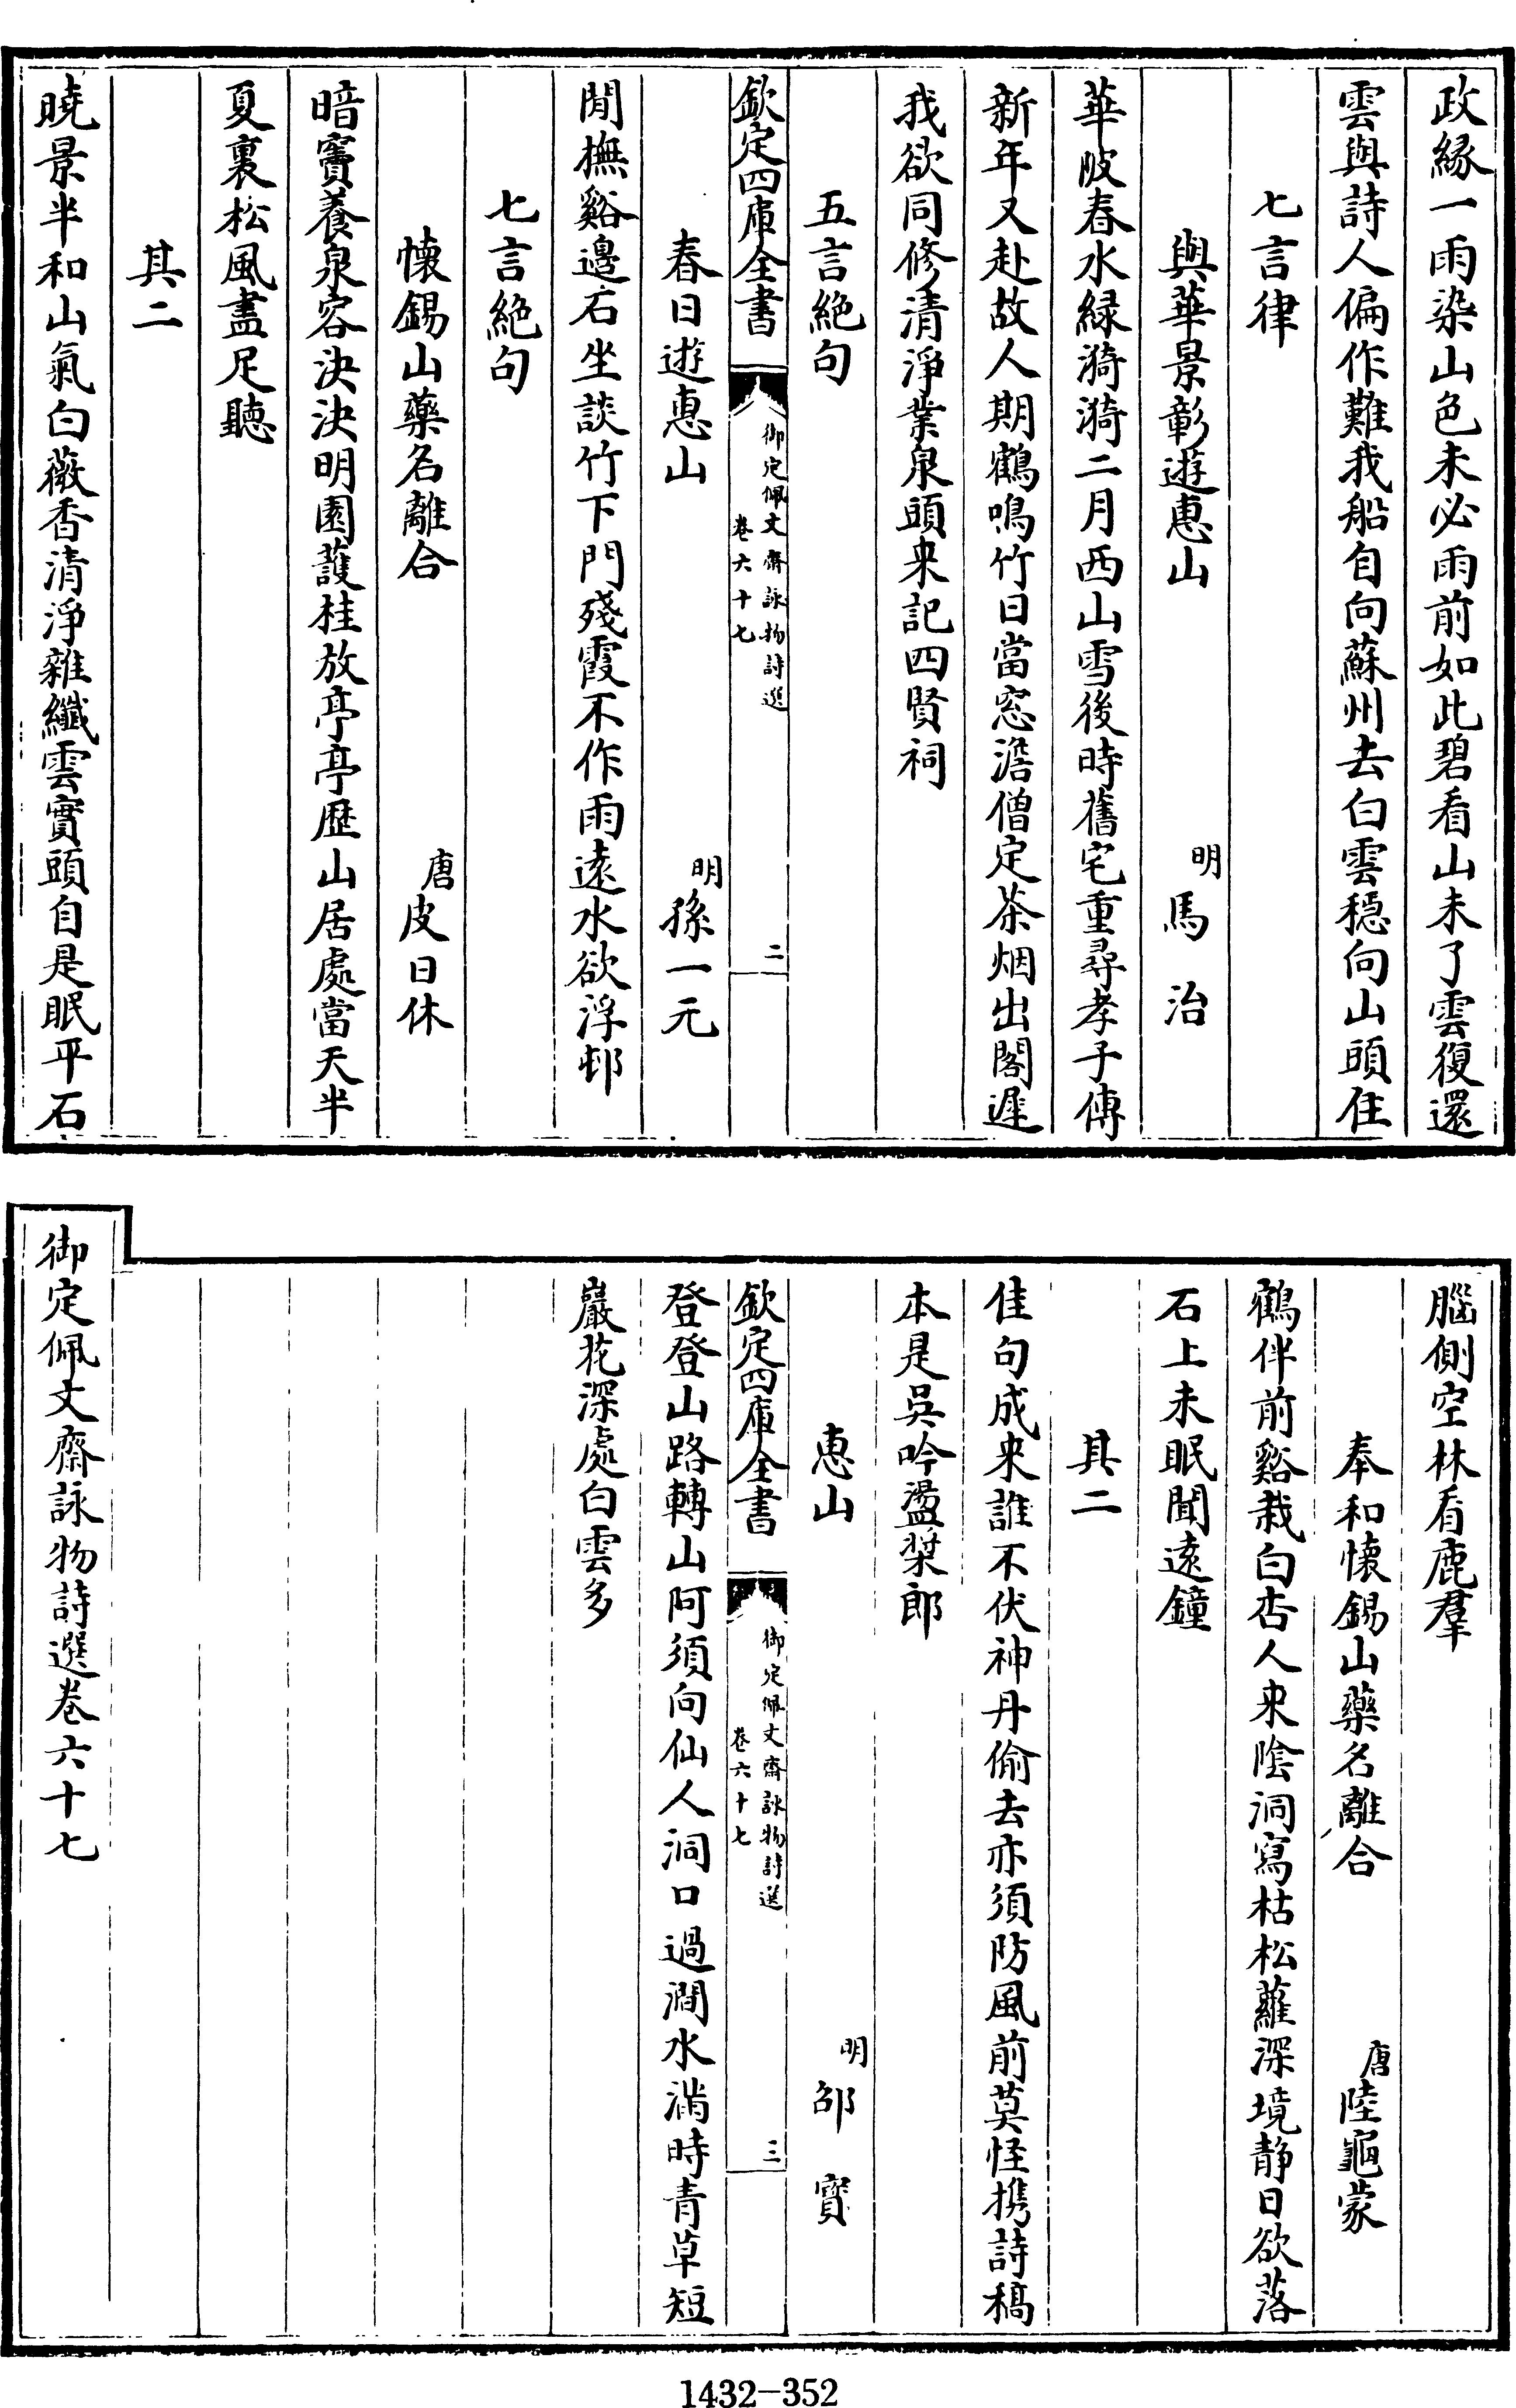 政緣一雨染山色未必雨前如此碧看山未了雲復還
雲與詩人偏作難我船自向蘇州去白雲穏向山頭住
七言律
與華景彰遊惠山 明馬治
華陂春水緑漪漪二月西山雪後時舊宅重尋孝子傳
新年又赴故人期鶴鳴竹日當窓澹僧定茶烟出閣遲
我欲同修清淨業泉頭来記四賢祠
五言絶句
欽定四庫全書
御定佩文齋詠物詩選
卷六十七
二
春日遊惠山 明孫一元
閒撫谿邉石坐談竹下門殘霞不作雨遠水欲浮邨
七言絶句
懷錫山藥名離合 唐皮日休
暗竇養泉容決決明園護桂放亭亭歷山居處當天半
夏裏松風盡足聽
其二
曉景半和山氣白薇香清淨雜纖雲實頭自是眠平石
腦側空林看鹿羣
奉和懷錫山藥名離合 唐陸龜蒙
鶴伴前谿栽白杏人来隂洞寫枯松蘿深境静日欲落
石上未眠聞遠鐘
其二
佳句成来誰不伏神丹偷去亦須防風前莫怪携詩稿
本是吳吟盪槳郎
惠山 明邵寳
欽定四庫全書
御定佩文齋詠物詩選
卷六十七
三
登登山路轉山阿須向仙人洞口過澗水滿時青草短
巖花深處白雲多
御定佩文齋詠物詩選卷六十七
1432-352